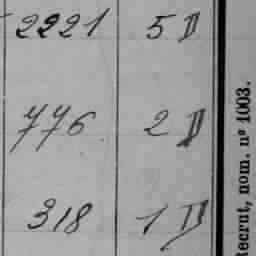 2221 5 D
776 2 D
318 1 D
Recrut, nom. nº 1003.